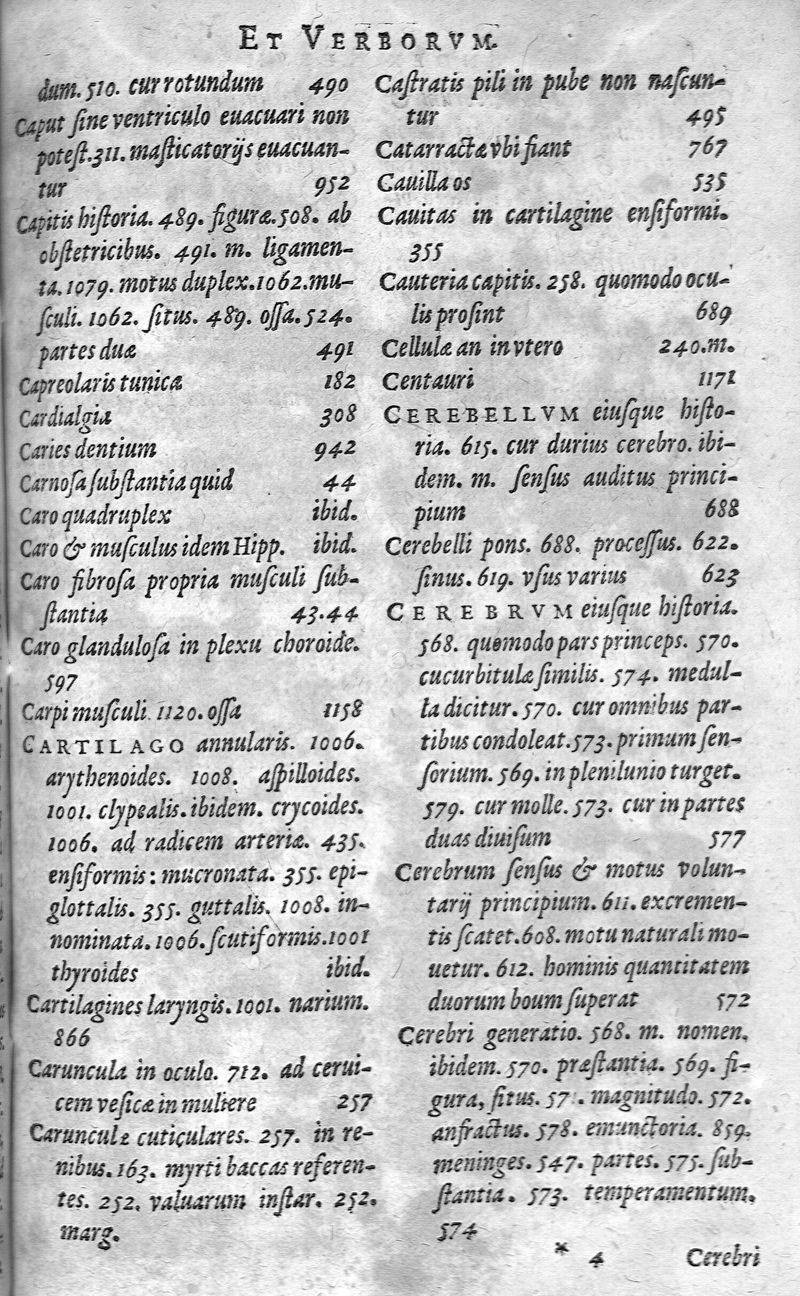 ET VERBORVM.
dum. 510. cur rotundum 490
Caput ſine ventriculo euacuari non
poteſt. 311. maſticatorijs euacuan-
tur 952
Capitis hiſtoria. 489. figuræ. 508. ab
obſtetricibus. 491. m. ligamen-
ta. 1079. motus duplex. 1062. mu-
ſculi. 1062. ſitus. 489. oſſa. 524.
partes duæ 491
Capreolaris tunica 182
Cardialgia 308
Caries dentium 942
Carnoſa ſubſtantia quid 44
Caro quadruplex ibid.
Caro & muſculus idem Hipp. ibid.
Caro fibroſa propria muſculi ſub-
ſtantia 43.44
Caro glanduloſa in plexu choroide.
597
Carpi muſculi. 1120. oſſa 1158
CARTILAGO annularis. 1006.
arythenoides. 1008. aſpilloides.
1001. clypealis. ibidem. crycoides.
1006. ad radicem arteriæ. 435.
enſiformis: mucronata. 355. epi-
glottalis. 355. guttalis. 1008. in-
nominata. 1006. ſcutiformis. 1001
thyroides ibid.
Cartilagines laryngis. 1001. narium.
866
Caruncula in oculo. 712. ad cerui-
cem veſicæ in muliere 257
Carunculæ cuticulares. 257. in re-
nibus. 163. myrti baccas referen-
tes. 252. valuarum inſtar. 252.
marg.
Caſtratis pili in pube non naſcun-
tur 495
Catarractæ vbi fiant 767
Cauilla os 535
Cauitas in cartilagine enſiformi.
355
Cauteria capitis. 258. quomodo ocu-
lis proſint 689
Cellulæ an in vtero 240.m.
Centauri 1171
CEREBELLVM eiuſque hiſto-
ria. 615. cur durius cerebro. ibi-
dem. m. ſenſus auditus princi-
pium 688
Cerebelli pons. 688. proceſſus. 622.
ſinus. 619. vſus varius 623
CEREBRVM eiuſque hiſtoria.
568. quomodo pars princeps. 570.
cucurbitulæ ſimilis. 574. medul-
la dicitur. 570. cur omnibus par-
tibus condoleat. 573. primum ſen-
ſorium. 569. in plenilunio turget.
579. cur molle. 573. cur in partes
duas diuiſum 577
Cerebrum ſenſus & motus volun-
tarij principium. 611. excremen-
tis ſcatet. 608. motu naturali mo-
uetur. 612. hominis quantitatem
duorum boum ſuperat 572
Cerebri generatio. 568. m. nomen.
ibidem. 570. præſtantia. 569. fi-
gura, ſitus. magnitudo. 572.
anfractus. 578. emunctoria. 859.
meninges. 547. partes. 575. ſub-
ſtantia. 573. temperamentum.
574
* 4 Cerebri